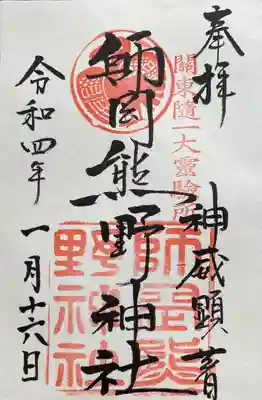 奉拝
關東隨一大靈驗所
神威顕育
師岡熊野神社
師岡熊野神社
令和四年
一月十六日